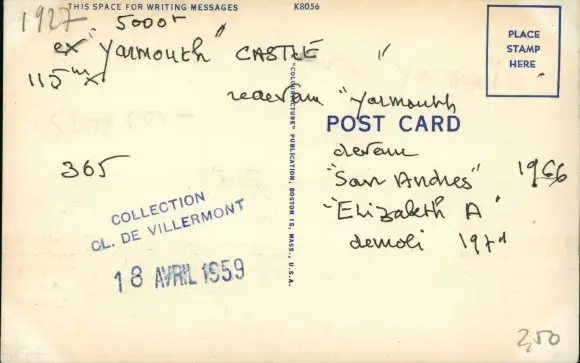 THIS SPACE FOR WRITING MESSAGES K8056
1927 5000t
ex "Yarmouth" CASTLE "
115m x
redevam "Yarmouth
"COLOURPICTURE" PUBLICATION, BOSTON 15, MASS., U.S.A.
PLACE
STAMP
HERE
POST CARD
devam
365
"San Andres" 1966
"Elizabeth A"
demoli 197
COLLECTION
CL. DE VILLERMONT
18 AVRIL 1959
2,50